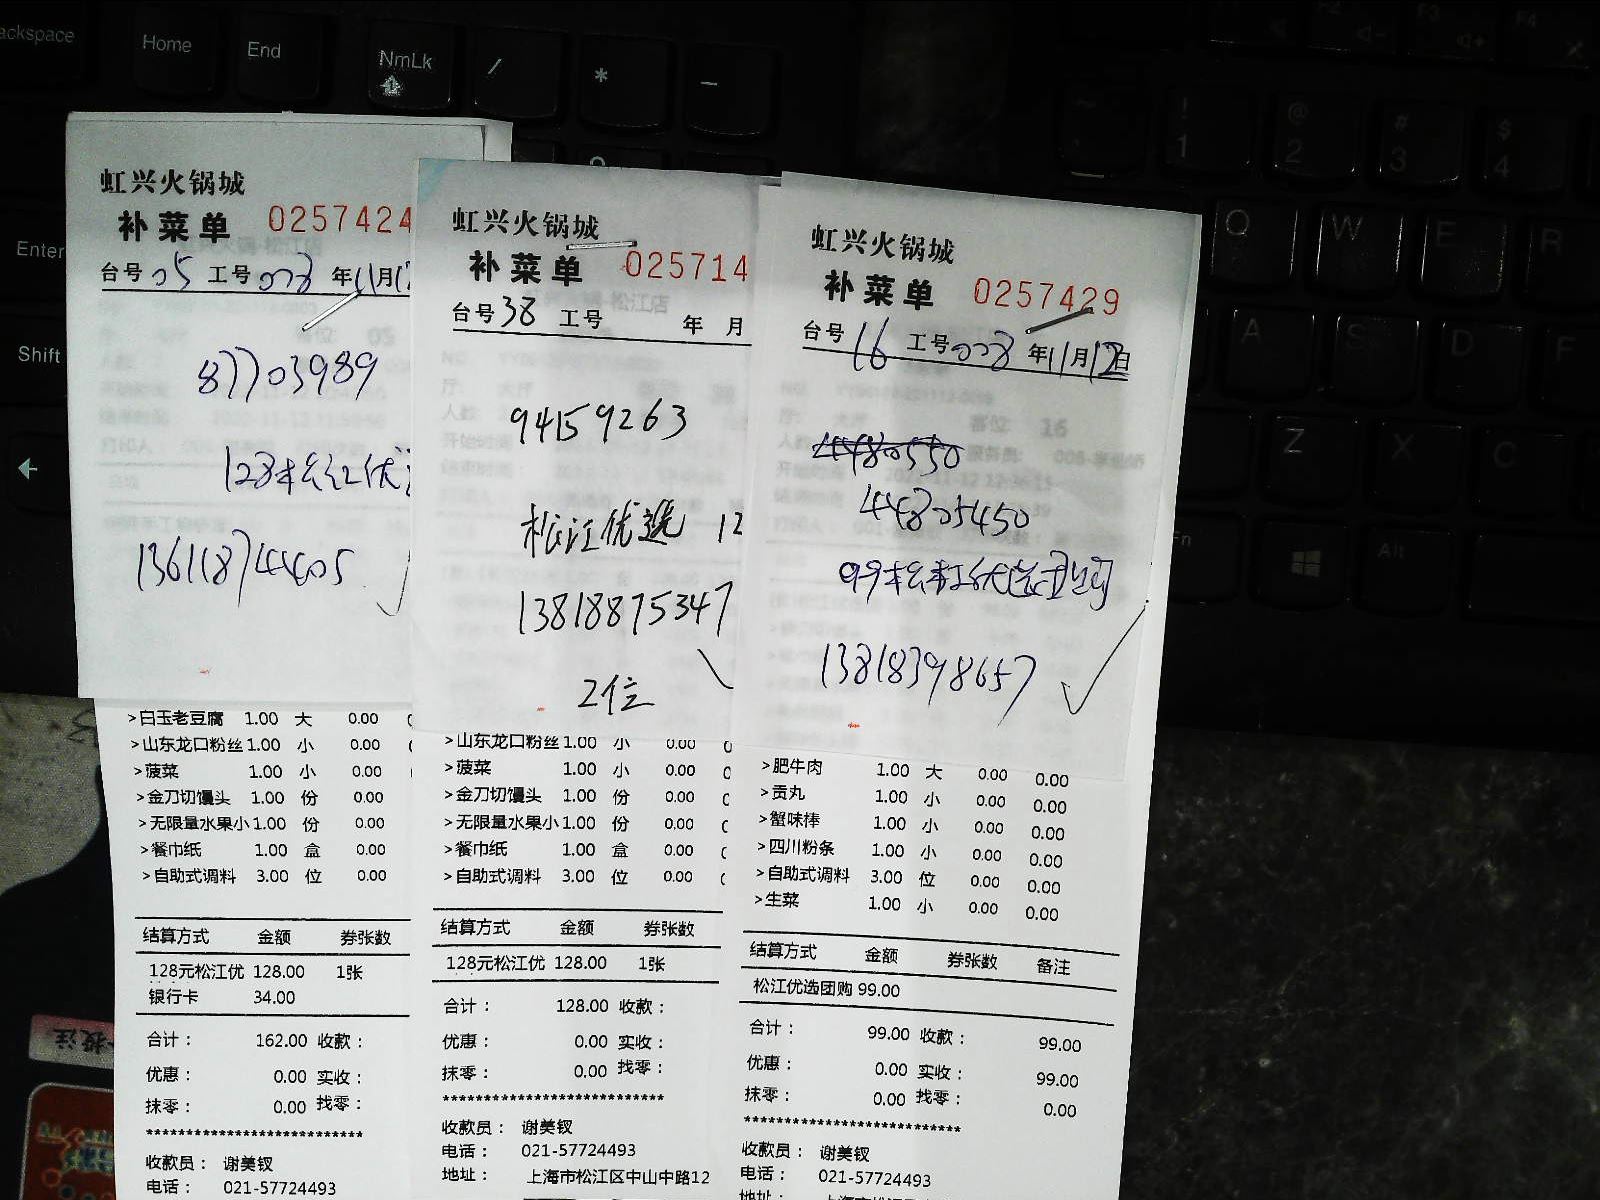 ackspace
Home
End
NmLk
/
*
-
Enter
Shift
!
1
@
2
#
3
$
4
Q
W
E
R
A
S
D
F
Z
X
C
Alt
虹兴火锅城
补菜单 0257424
台号 05 工号 008 年 11月12
87703989
128松江优
13611874405
>白玉老豆腐 1.00 大 0.00
>山东龙口粉丝 1.00 小 0.00
>菠菜 1.00 小 0.00
>金刀切馒头 1.00 份 0.00
>无限量水果小 1.00 份 0.00
>餐巾纸 1.00 盒 0.00
>自助式调料 3.00 位 0.00
结算方式 金额 券张数
128元松江优 128.00 1张
银行卡 34.00
合计： 162.00 收款：
优惠： 0.00 实收：
抹零： 0.00 找零：
**************************
收款员： 谢美钗
电话： 021-57724493
虹兴火锅城
补菜单 025714
台号 38 工号 年 月
94159263
松江优选 12
13818875347
2位
>山东龙口粉丝 1.00 小 0.00
>菠菜 1.00 小 0.00
>金刀切馒头 1.00 份 0.00
>无限量水果小 1.00 份 0.00
>餐巾纸 1.00 盒 0.00
>自助式调料 3.00 位 0.00
结算方式 金额 券张数
128元松江优 128.00 1张
合计： 128.00 收款：
优惠： 0.00 实收：
抹零： 0.00 找零：
**************************
收款员： 谢美钗
电话： 021-57724493
地址： 上海市松江区中山中路12
虹兴火锅城
补菜单 0257429
台号 16 工号 008 年 11月12日
44805450
13818398657
>肥牛肉 1.00 大 0.00 0.00
>贡丸 1.00 小 0.00 0.00
>蟹味棒 1.00 小 0.00 0.00
>四川粉条 1.00 小 0.00 0.00
>自助式调料 3.00 位 0.00 0.00
>生菜 1.00 小 0.00 0.00
结算方式 金额 券张数 备注
松江优选团购 99.00
合计： 99.00 收款： 99.00
优惠： 0.00 实收： 99.00
抹零： 0.00 找零： 0.00
**************************
收款员： 谢美钗
电话： 021-57724493